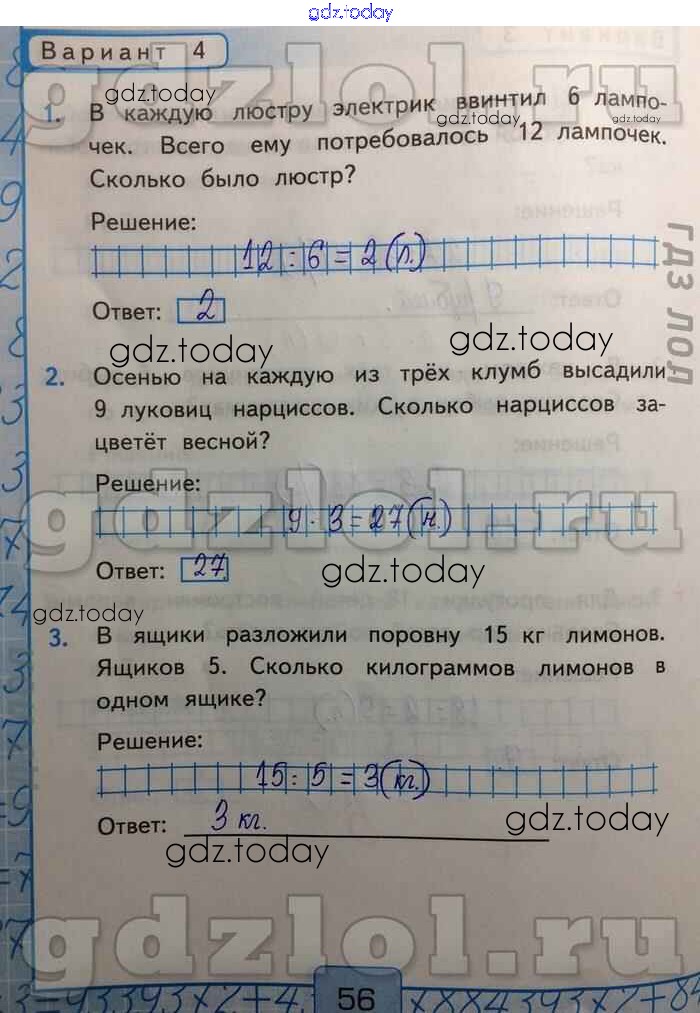 gdz.today
Вариант 4
gdz.today
gdz.today
1. В каждую люстру электрик ввинтил 6 лампо-
чек. Всего ему потребовалось 12 лампочек.
Сколько было люстр?
Решение:
12 : 6 = 2 (л.)
Ответ: 2
gdz.today
gdz.today
гдз лол
2. Осенью на каждую из трёх клумб высадили
9 луковиц нарциссов. Сколько нарциссов за-
цветёт весной?
Решение:
gdzlol.ru
9 · 3 = 27 (н.)
Ответ: 27
gdz.today
gdz.today
3. В ящики разложили поровну 15 кг лимонов.
Ящиков 5. Сколько килограммов лимонов в
одном ящике?
Решение:
15 : 5 = 3 (кг.)
Ответ: 3 кг.
gdz.today
gdz.today
gdzlol.ru
56